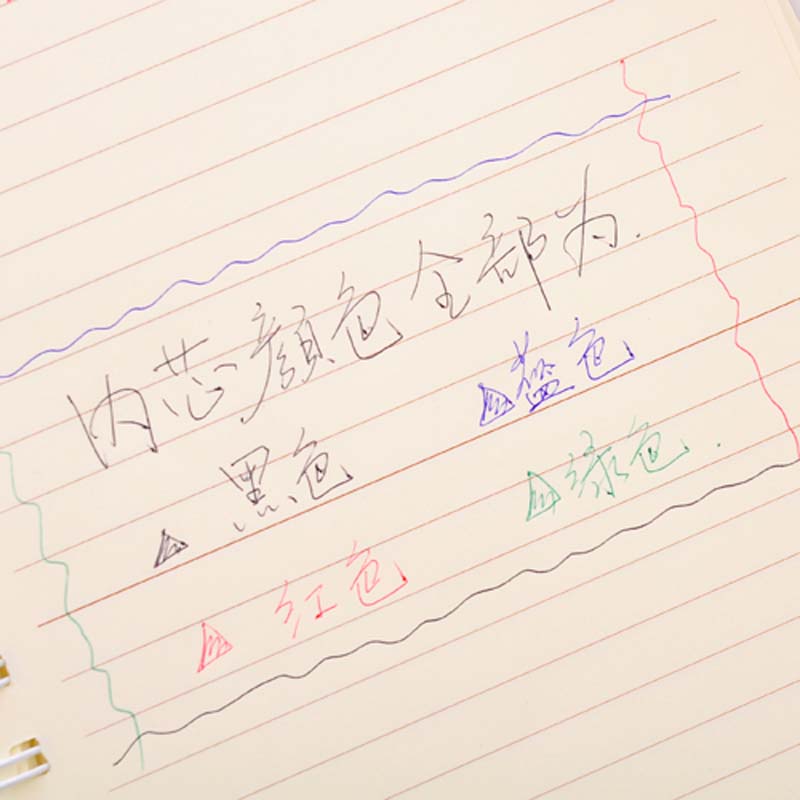 内芯颜色全部为.
黑色 蓝色
红色 绿色.